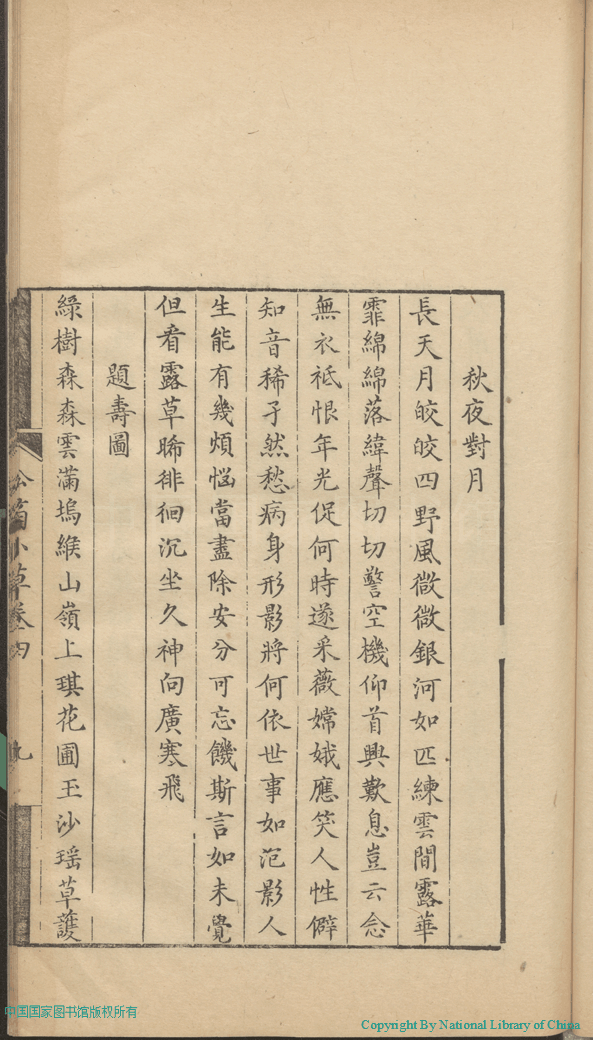 秋夜對月
長天月皎皎四野風微微銀河如匹練雲間露華
霏綿綿落緯聲切切警空機仰首興歎息豈云念
無衣祗恨年光促何時遂采薇嫦娥應笑人性僻
知音稀孑然愁病身形影將何依世事如泡影人
生能有幾煩惱當盡除安分可忘饑斯言如未覺
但看露草晞徘徊沉坐久神向廣寒飛
題壽圖
綠樹森森雲滿塢緱山嶺上琪花圃玉沙瑶草護
小草卷四
九
中国国家图书馆版权所有
Copyright By National Library of China